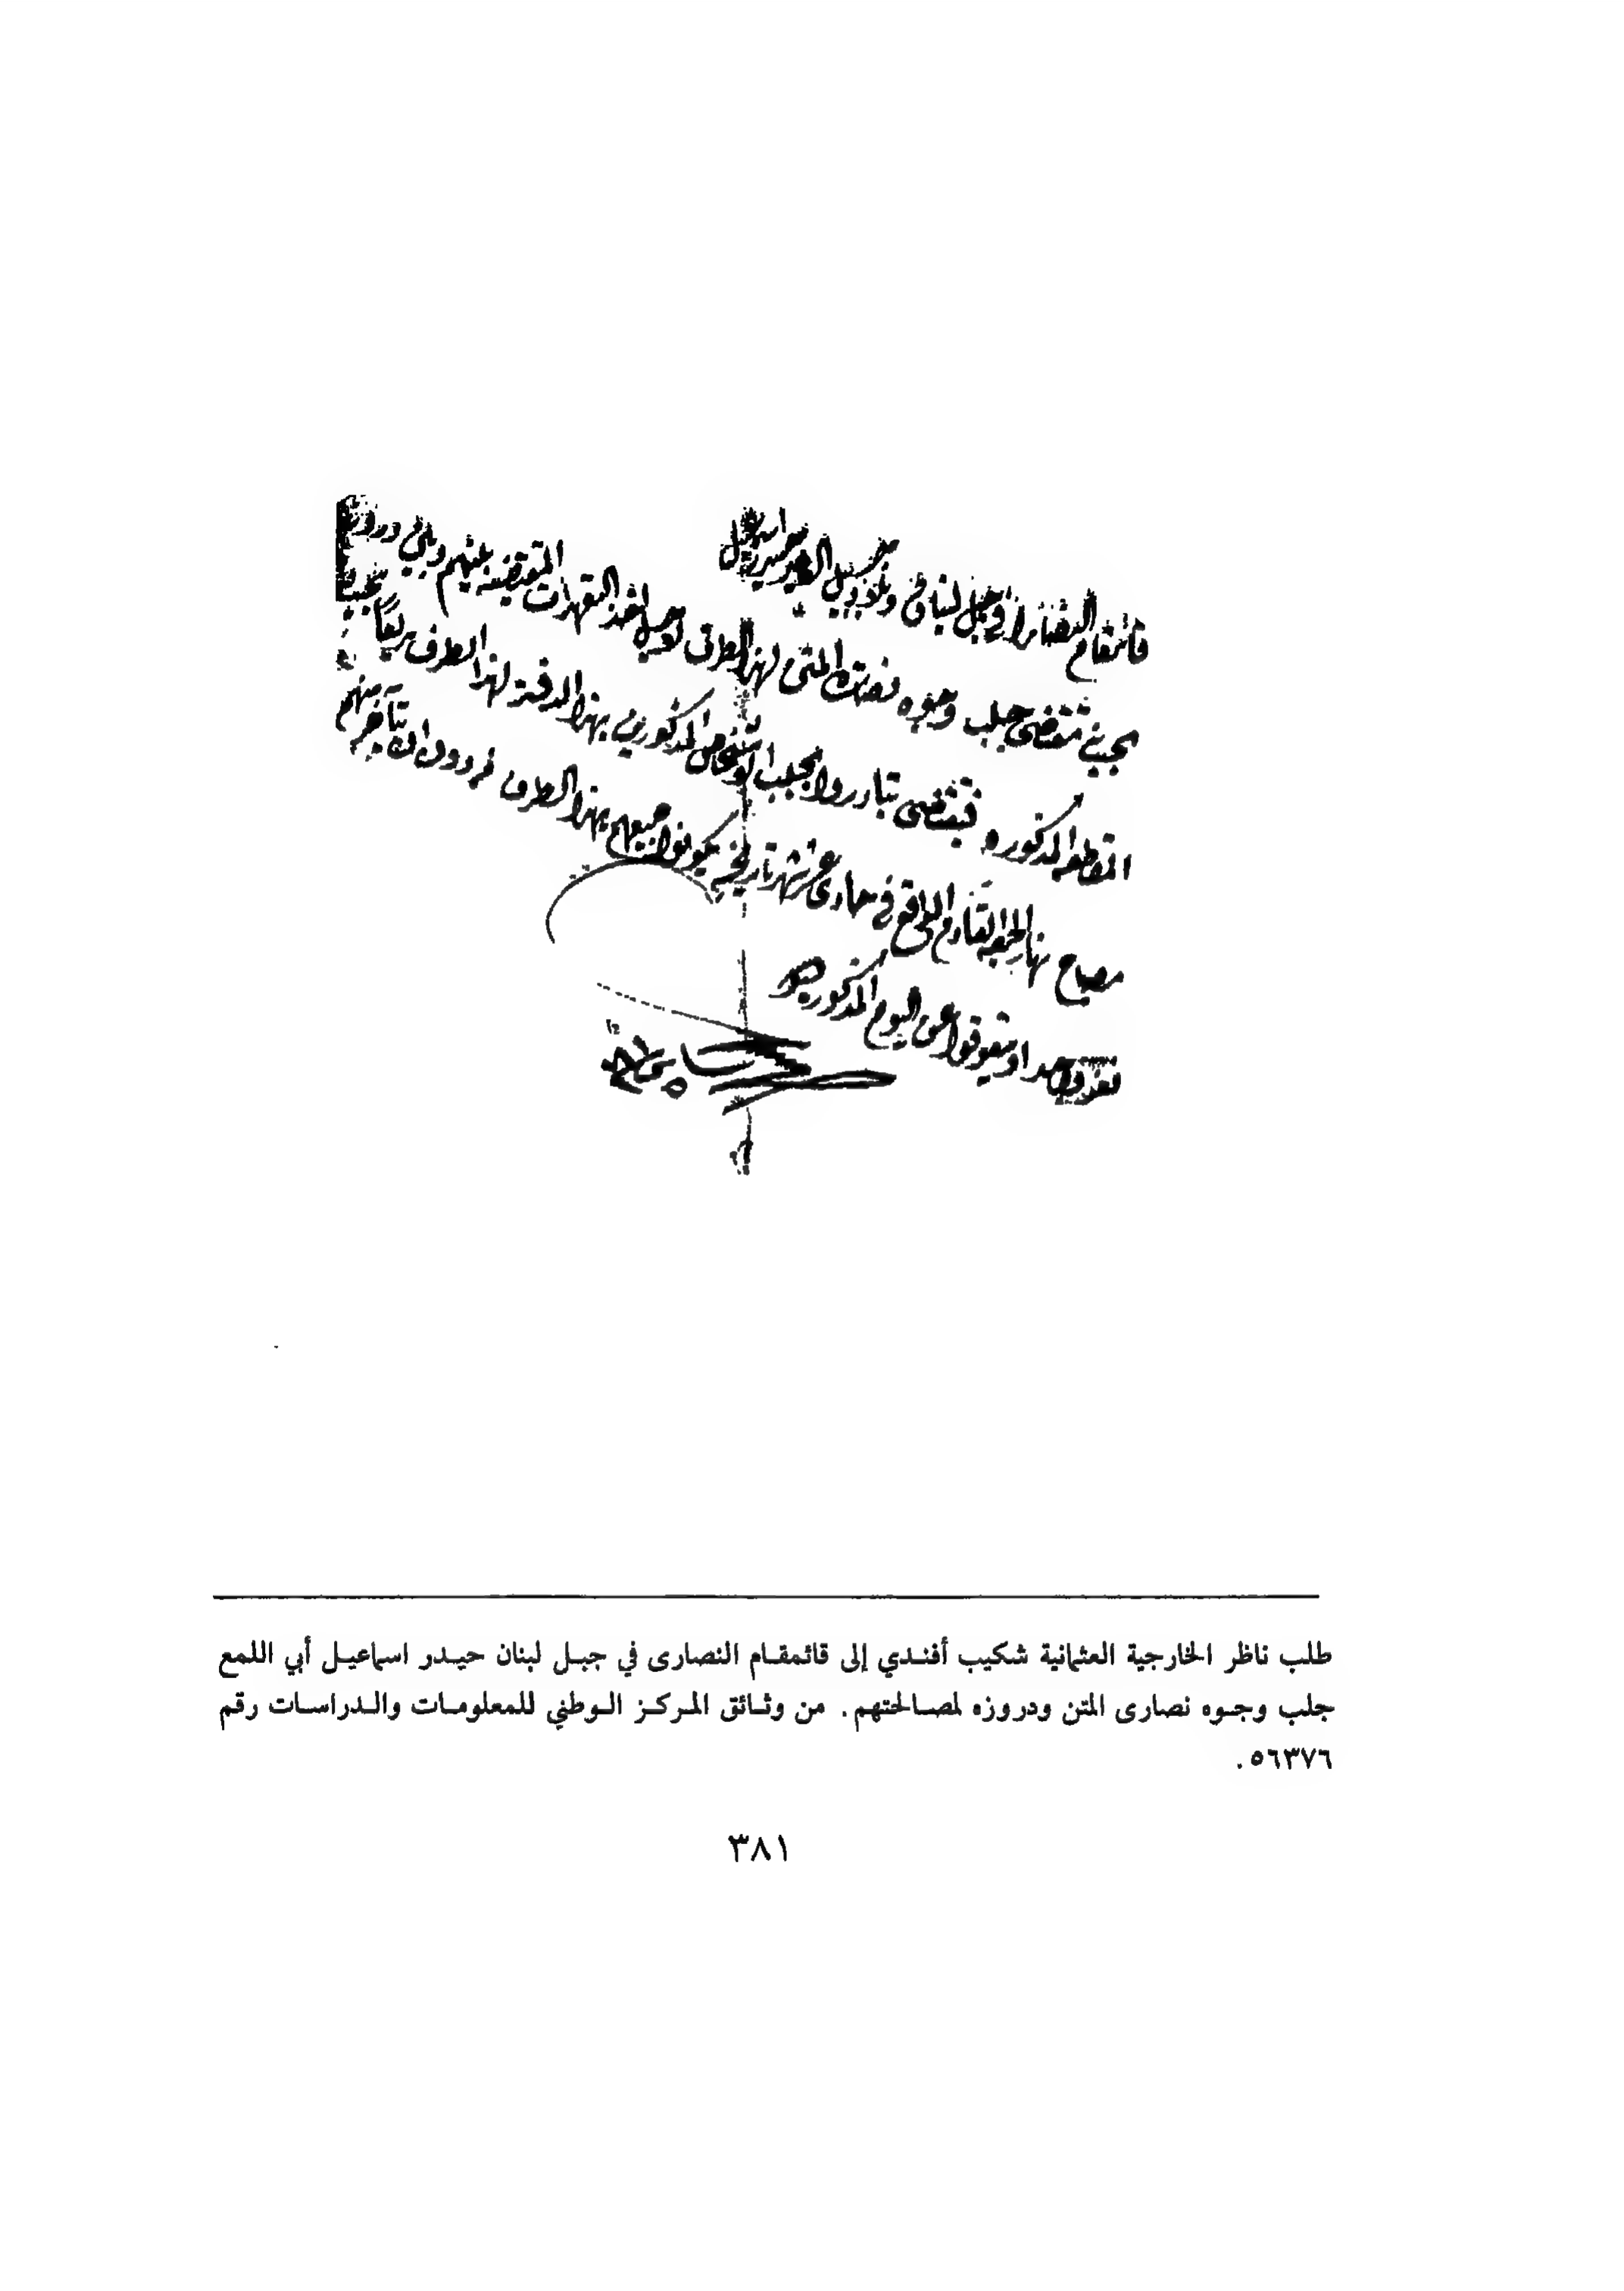 قائمقام النصارا في جبل لبنان حيدر اسماعيل
بحيث مقتضي جلب وجوه نصارة المتن لهذا الطرف لاجل اخذ التعهدات المقتضيه عليهم
المقاطعه المذكوره فيقتضي تبادروا بجلب الاشخاص المذكورين بهذا الدفتر لهذا الطرف سريعاً بحيث
صباح نهار الجمعه القادم الواقع في حادي عشر شهر تاريخه يكونوا جميعهم بهذا الطرف من دون ان يتأخر منهم
واحد او يتعوقوا عن اليوم المذكور
طلب ناظر الخارجية العثمانية شكيب أفندي إلى قائمقام النصارى في جبل لبنان حيدر اسماعيل أبي اللمع
جلب وجوه نصارى المتن ودروزه لمصالحتهم. من وثائق المركز الوطني للمعلومات والدراسات رقم
٥٦٣٧٦.
٣٨١